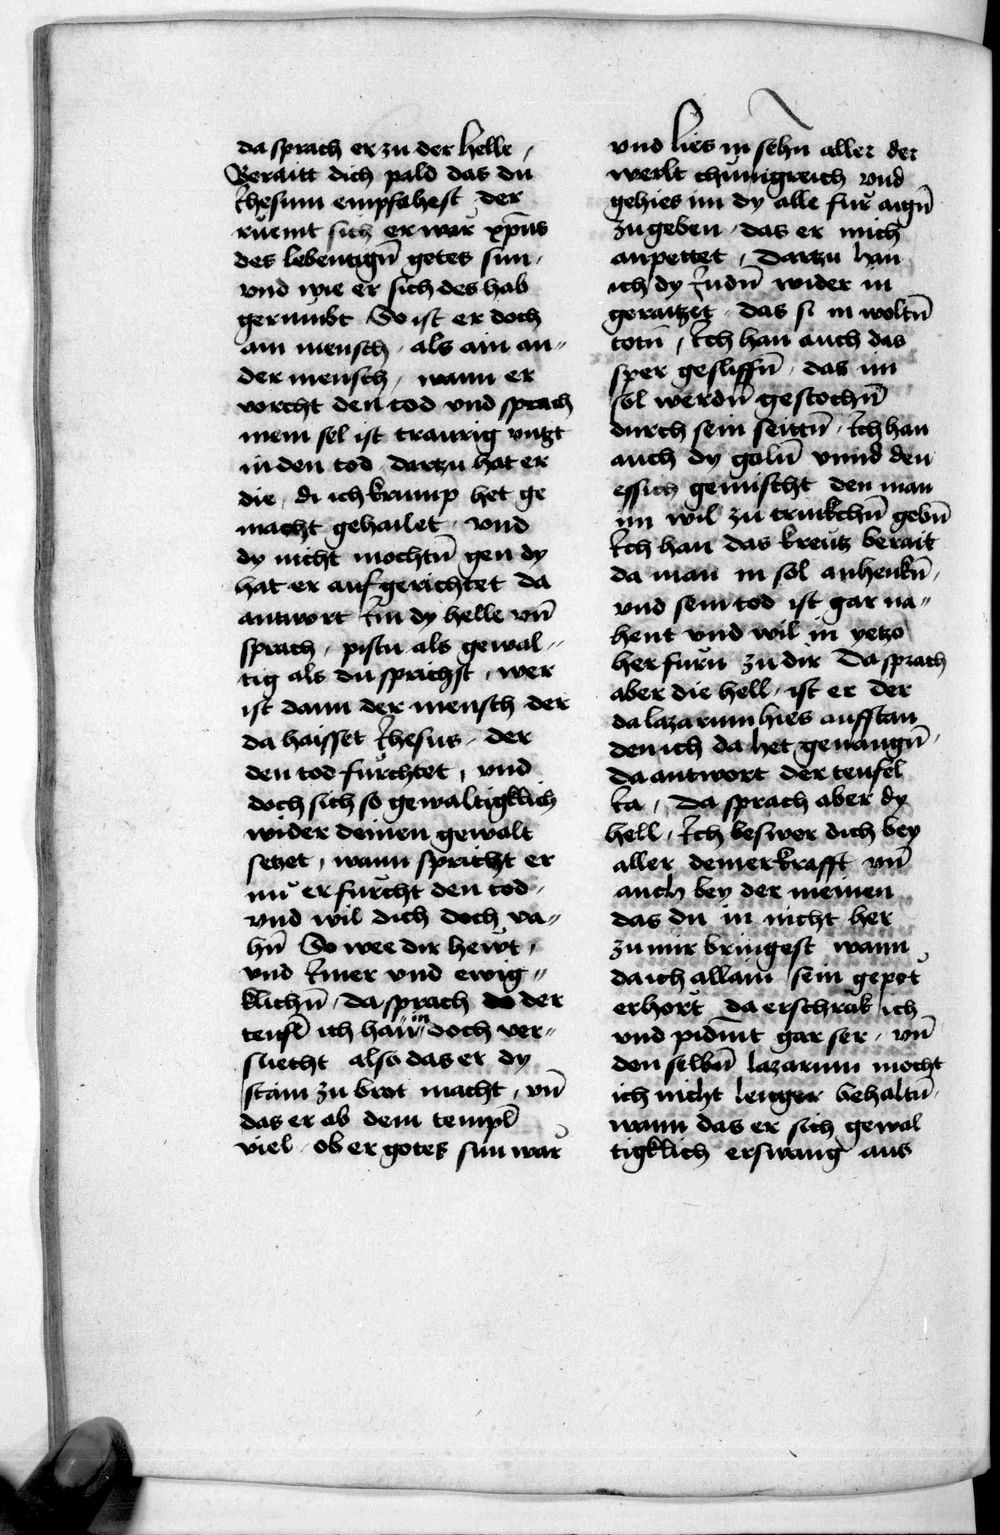 da sprach er zu der helle /
Beraitt dich pald das du
Jhesum empfahest der
ruemt sich er wär xp̄us
des lebentigñ gotes sun /
vnd wie er sich des hab
gerumbt So ist er doch
ain mensch / als ain an〃
der mensch / wann er
vorcht den tod vnd sprach
mein sel ist traurig vntzt
in den tod / dartzu hat er
die / di ich krump het ge
macht gehailet / vnd
dy nicht mochtñ gen dy
hat er auf gerichtet da
antwort Jm dy helle vñ
sprach / pistu als gewal〃
tig als du sprichst / wer
ist dann der mensch der
da haisset Jhesus / der
den tod fürchtet / vnd
doch sich so gewaltigklich
wider deinen gewalt
setzet / wann spricht er
nu er fürcht den tod /
vnd wil dich doch va〃
hñ So wee dir hewt /
vnd Jmer vnd ewig〃
klichñ / da sprach der
teufl ich han in doch ver〃
suecht also das er dy
stain zu brot macht / vñ
das er ab dem templ
viel / ob er gotes sun wär
vnd lies in sehn aller der
werlt chünigreich vnd
gehies im dy alle für aigñ
zu geben / das er mich
anpettet / dartzu han
ich dy Judñ wider in
geraitzet / das si in woltñ
totñ / Ich han auch das
sper gesliffñ / das im
sol werdñ gestochñ
durch sein seittñ / Ich han
auch dy gallñ vnnd den
essich gemischt den man
im wil zu trinkchñ gebñ
Ich han das kreutz berait
da man in sol anhenkñ /
vnd sein tod ist gar na〃
hent vnd wil in yetzo
her fürn zu dir Da sprach
aber die hell / ist er der
da lazarum hies aufstan
den ich da het geuangñ /
da antwort der teufel
ia / da sprach aber dy
hell / Ich beswer dich bey
aller deiner krafft vñ
auch bey der meinen
das du in nicht her
zu mir bringest wann
da ich allain sein gepot
erhort da erschrak ich
vnd pidmt gar ser / vñ
den selbñ lazarum mocht
ich nicht lenger behaltñ /
wann das er sich gewal
tigklich erswang aus